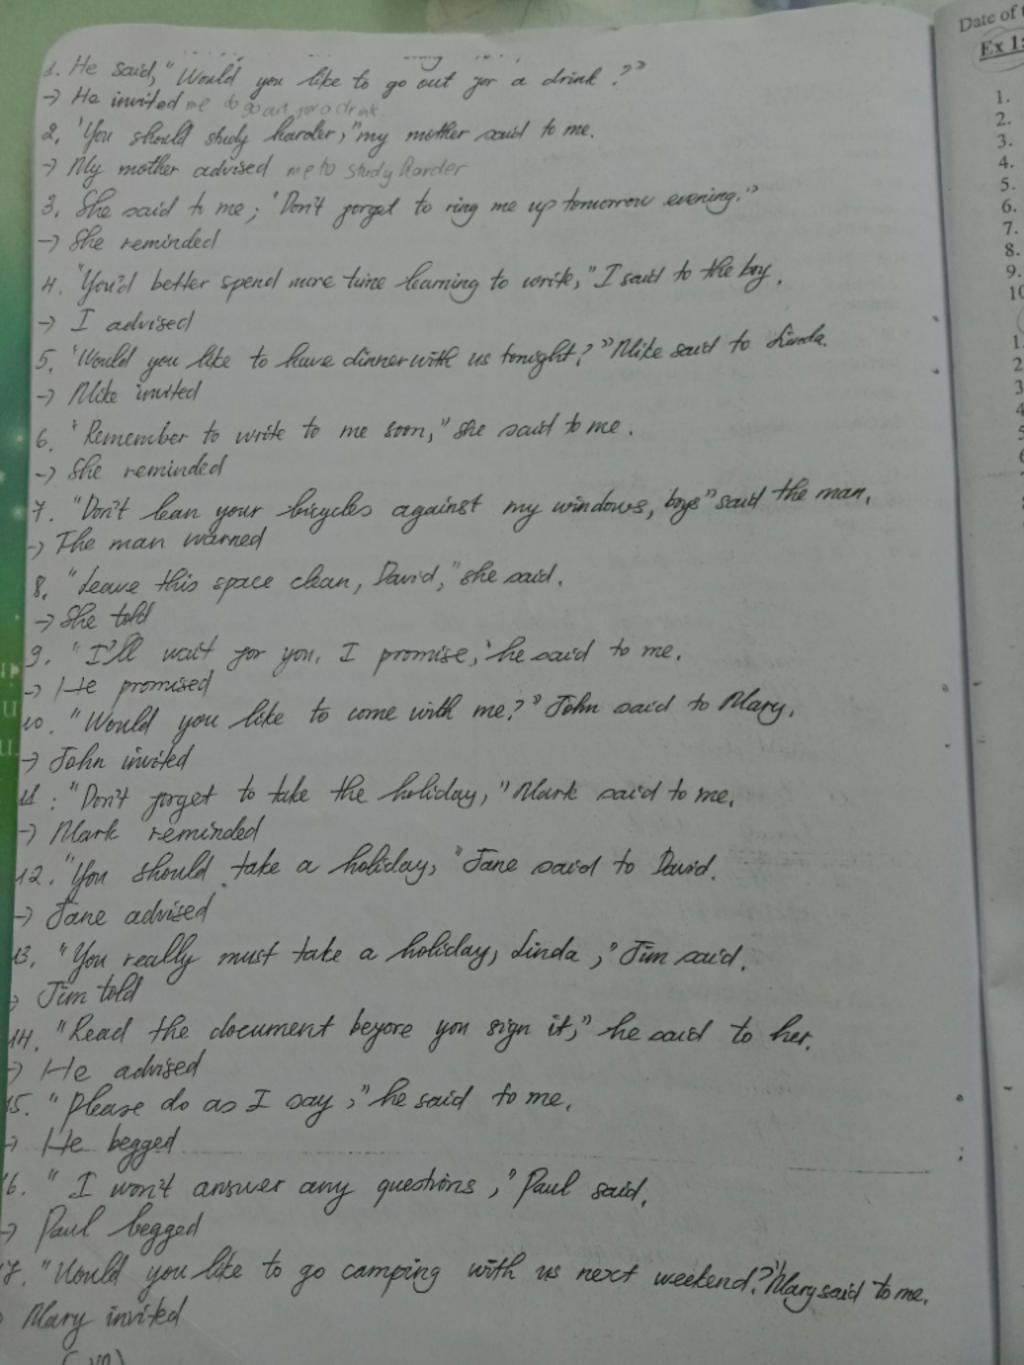 1. He said, "Would you like to go out for a drink?"
→ He invited me to go out for a drink
2. "You should study harder," my mother said to me.
→ My mother advised me to study harder
3. She said to me; "Don't forget to ring me up tomorrow evening."
→ She reminded
4. "You'd better spend more time learning to write," I said to the boy.
→ I advised
5. "Would you like to have dinner with us tonight?" Mike said to Linda.
→ Mike invited
6. "Remember to write to me soon," she said to me.
→ She reminded
7. "Don't lean your bicycles against my windows, boys" said the man.
→ The man warned
8. "Leave this space clean, David," she said.
→ She told
9. "I'll wait for you, I promise," he said to me.
→ He promised
10. "Would you like to come with me?" John said to Mary.
→ John invited
11: "Don't forget to take the holiday," Mark said to me.
→ Mark reminded
12. "You should take a holiday," Jane said to David.
→ Jane advised
13. "You really must take a holiday, Linda," Jim said.
→ Jim told
14. "Read the document before you sign it," he said to her.
→ He advised
15. "Please do as I say," he said to me.
→ He begged
16. "I won't answer any questions," Paul said.
→ Paul begged
17. "Would you like to go camping with us next weekend?" Mary said to me.
→ Mary invited
Date of
Ex 1:
1.
2.
3.
4.
5.
6.
7.
8.
9.
10
1.
2
3
4
5